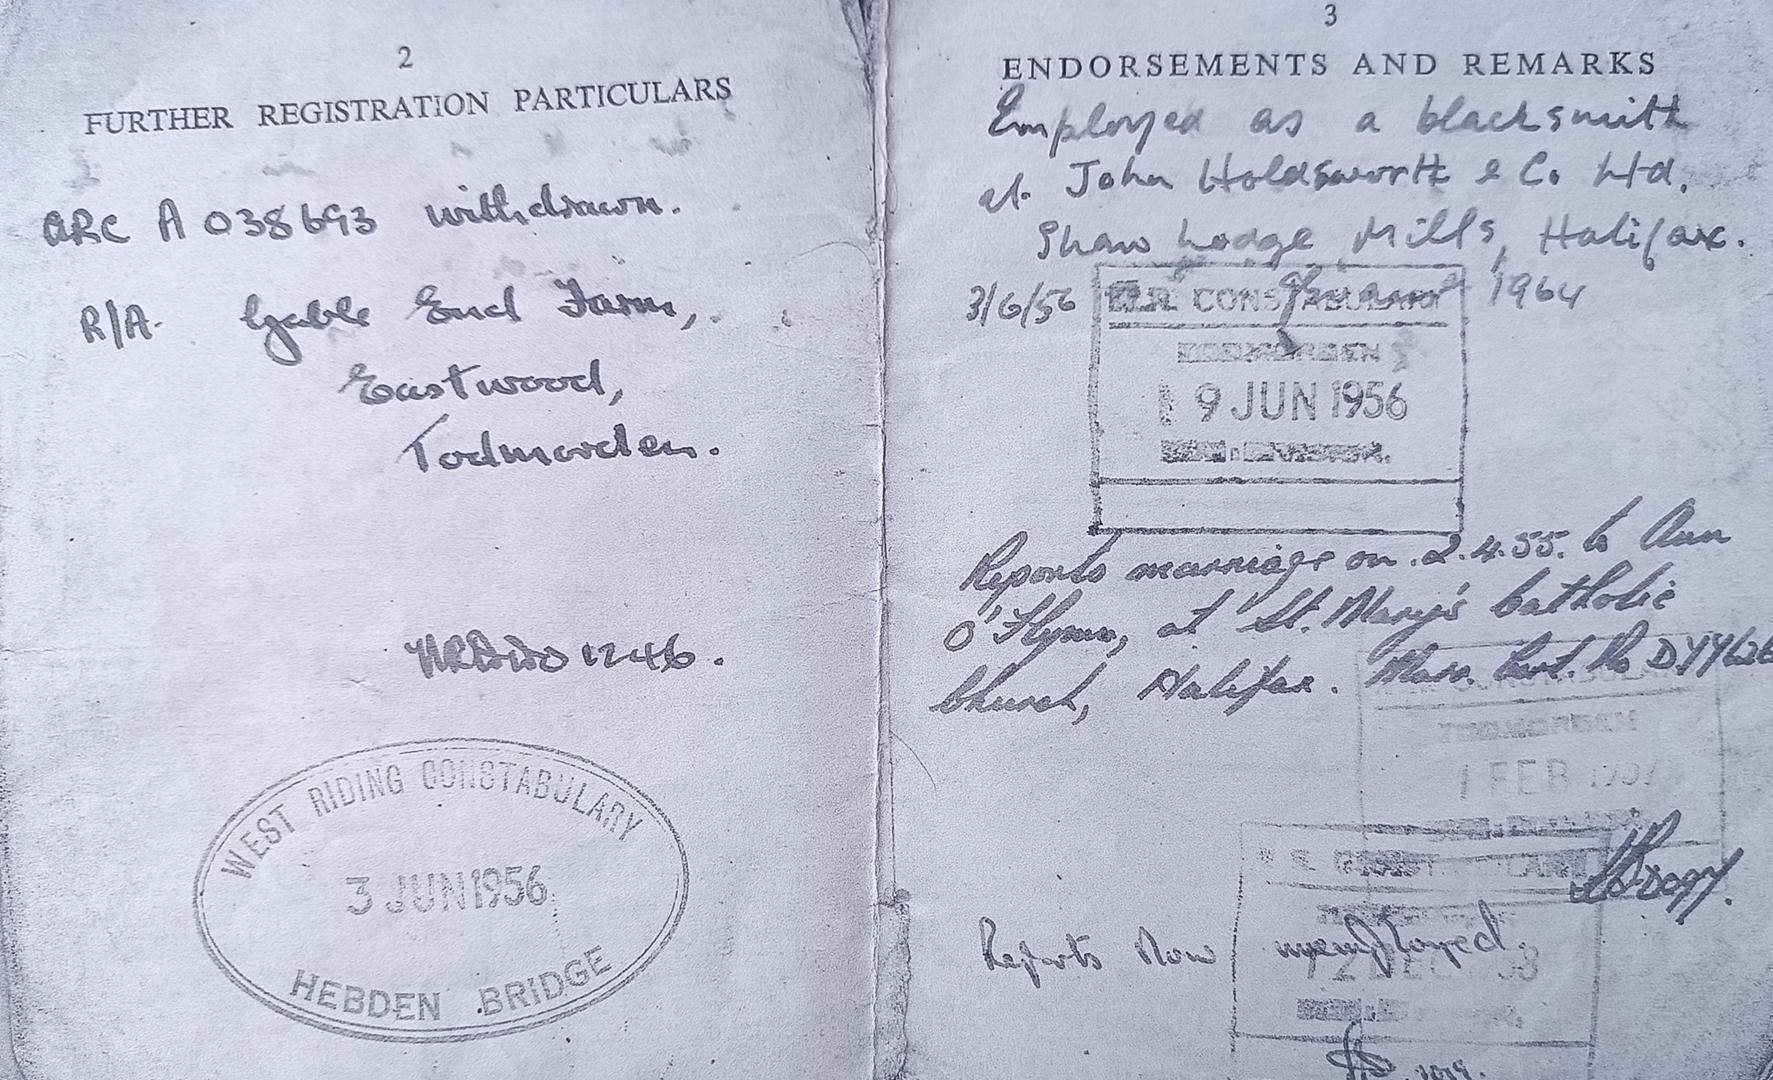 2
FURTHER REGISTRATION PARTICULARS
ARC A 038693 withdrawn.
R/A. Gable End Farm,
Eastwood,
Todmorden.
1246.
WEST RIDING CONSTABULARY
3 JUN 1956
HEBDEN BRIDGE
3
ENDORSEMENTS AND REMARKS
Employed as a blacksmith
at John Holdsworth & Co. Ltd.
Shaw Lodge Mills, Halifax.
3/6/56 1964
W.R. CONSTABULARY
TODMORDEN
9 JUN 1956
Reports marriage on 2.4.55. to Ann
O'Flynn, at St. Mary's Catholic
Church, Halifax. Marr. Cert. No
TODMORDEN
1 FEB
Reports Now unemployed.